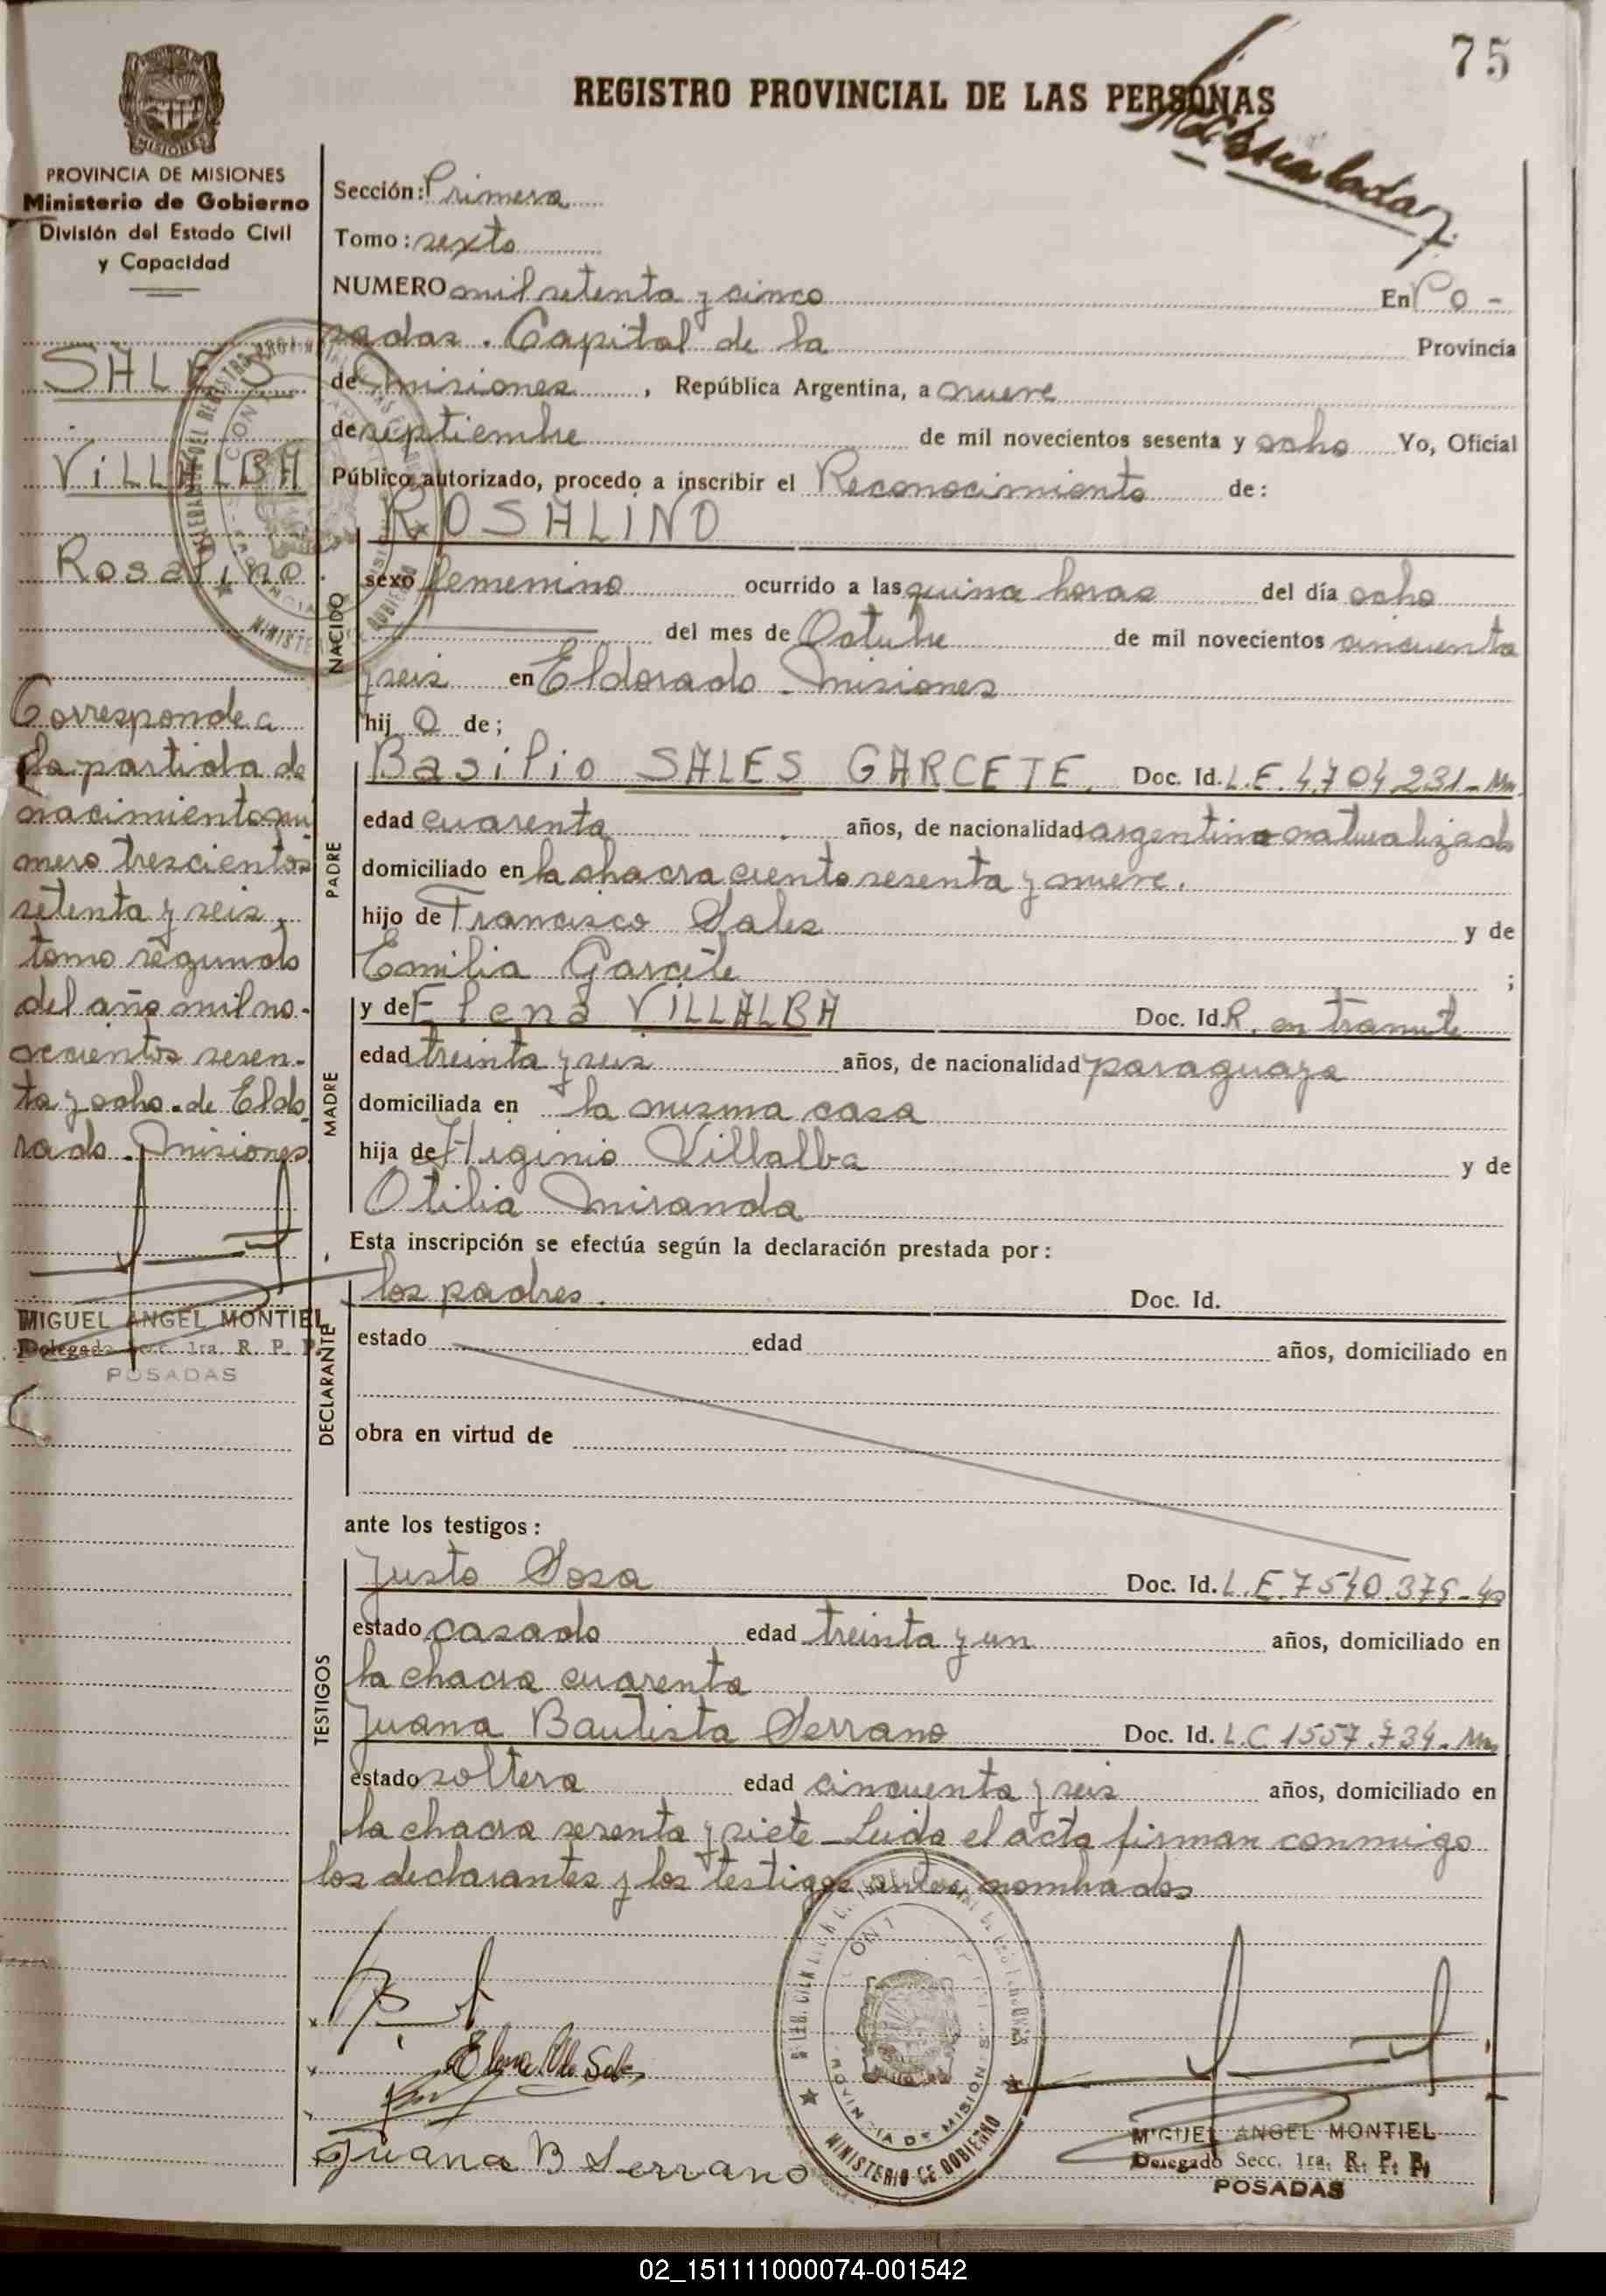 75
REGISTRO PROVINCIAL DE LAS PERSONAS
PROVINCIA DE MISIONES
Ministerio de Gobierno
División del Estado Civil
y Capacidad
SALES
VILLALBA
Rosalino.
Corresponde a
la partida de
nacimiento nu
mero trescientos
setenta y seis,
tomo segundo
del año mil no-
vecientos sesen-
ta y ocho. de Eldo
rado. Misiones
MIGUEL ANGEL MONTIEL
Delegado Secc. 1ra. R. P. P.
POSADAS
Sección: Primera
Tomo: sexto
NUMERO mil setenta y cinco En Po-
sadas. Capital de la Provincia
de Misiones, República Argentina, a nueve
de septiembre de mil novecientos sesenta y ocho Yo, Oficial
Público autorizado, procedo a inscribir el Reconocimiento de:
ROSALINO
NACIDO
sexo femenino ocurrido a las quince horas del día ocho
del mes de Octubre de mil novecientos cincuenta
y seis en Eldorado - Misiones
hij o de;
PADRE
Basilio SALES GARCETE, Doc. Id. L.E. 4.704.231-
edad cuarenta años, de nacionalidad argentino naturalizado
domiciliado en la chacra ciento sesenta y nueve.
hijo de Francisco Sales y de
Emilia Garcete ;
MADRE
y de Elena VILLALBA Doc. Id. R. en tramite
edad treinta y seis años, de nacionalidad paraguaya
domiciliada en la misma casa
hija de Higinio Villalba y de
Otilia Miranda
Esta inscripción se efectúa según la declaración prestada por:
DECLARANTE
los padres. Doc. Id.
estado edad años, domiciliado en
obra en virtud de
ante los testigos:
TESTIGOS
Justo Sosa Doc. Id. L.E. 7540.375-
estado casado edad treinta y un años, domiciliado en
la chacra cuarenta
Juana Bautista Serrano Doc. Id. L.C 1557.734-
estado soltera edad cincuenta y seis años, domiciliado en
la chacra sesenta y siete - Leida el acta firman conmigo
los declarantes y los testigos antes nombrados
Juana B Serrano
MINISTERIO DE GOBIERNO
PROVINCIA DE MISIONES
MIGUEL ANGEL MONTIEL
Delegado Secc. 1ra. R. P. P.
POSADAS
02_151111000074-001542